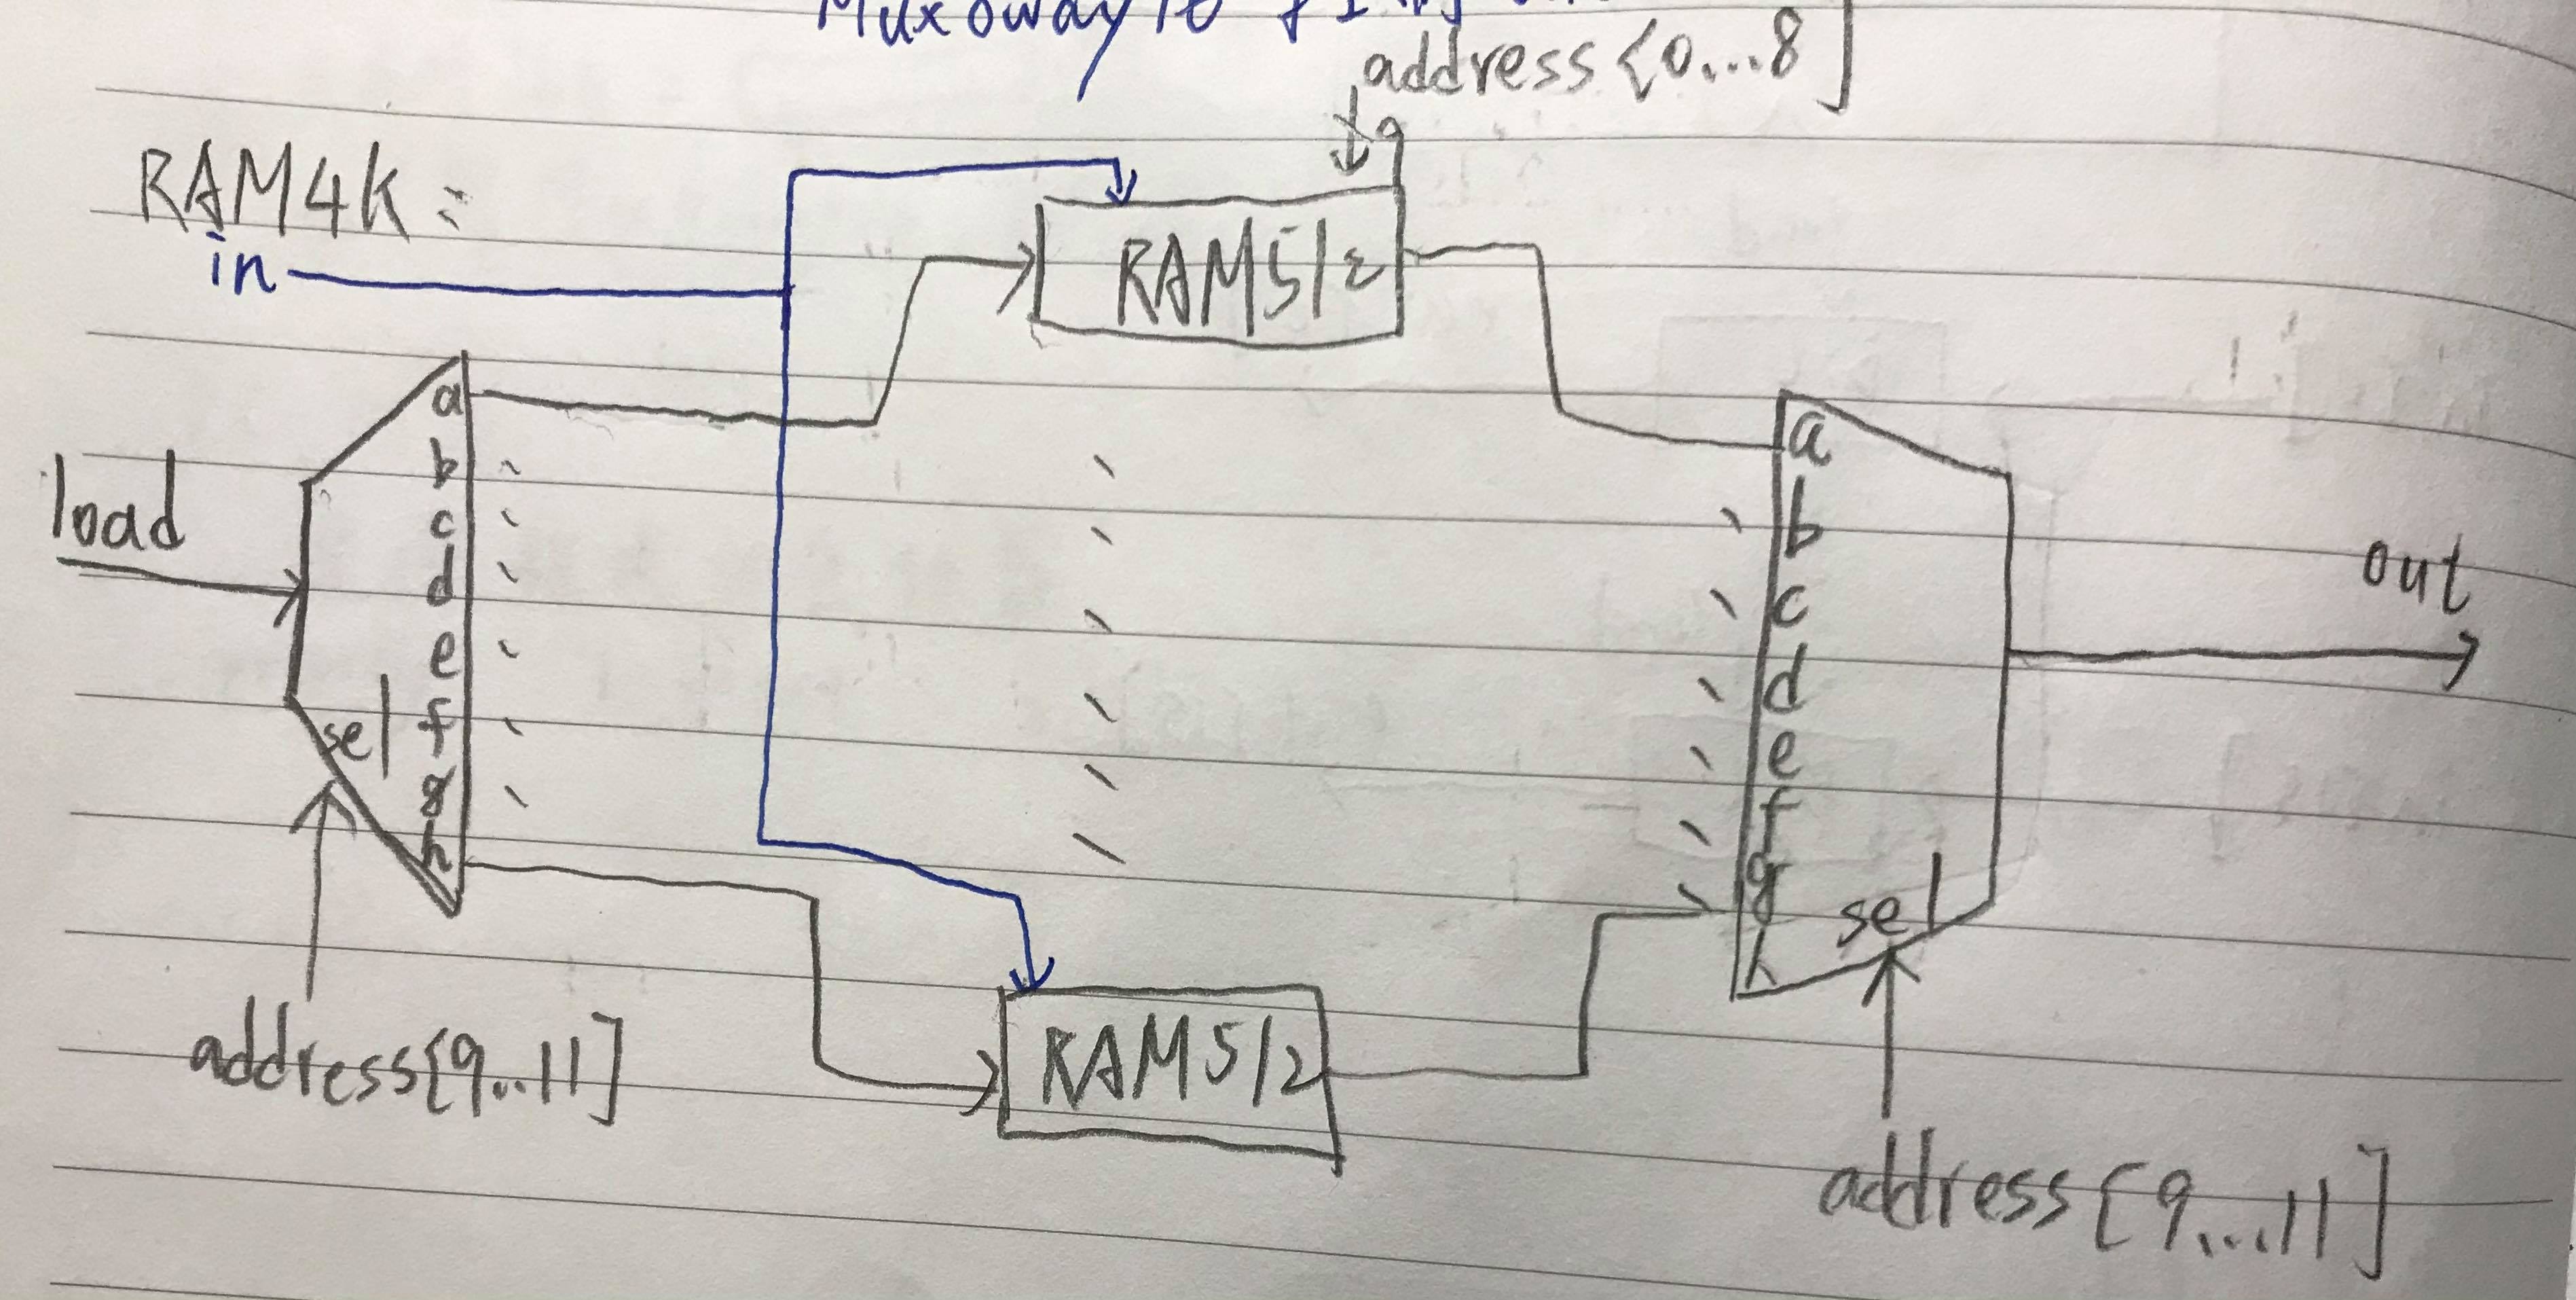 address{0...8]
9
RAM4K:
in
RAM512
load
a
b
c
d
e
f
g
h
sel
address[9..11]
RAM512
a
b
c
d
e
f
g
h
sel
out
address[9...11]